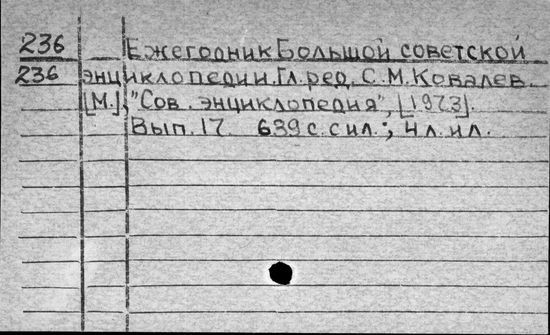 236 Ежегодник Большой советской
236 энциклопедии. Гл. ред. С. М. Ковалев.
[М.], "Сов. энциклопедия", [1973].
Вып. 17. 639 с. с ил.; 4 л. ил.